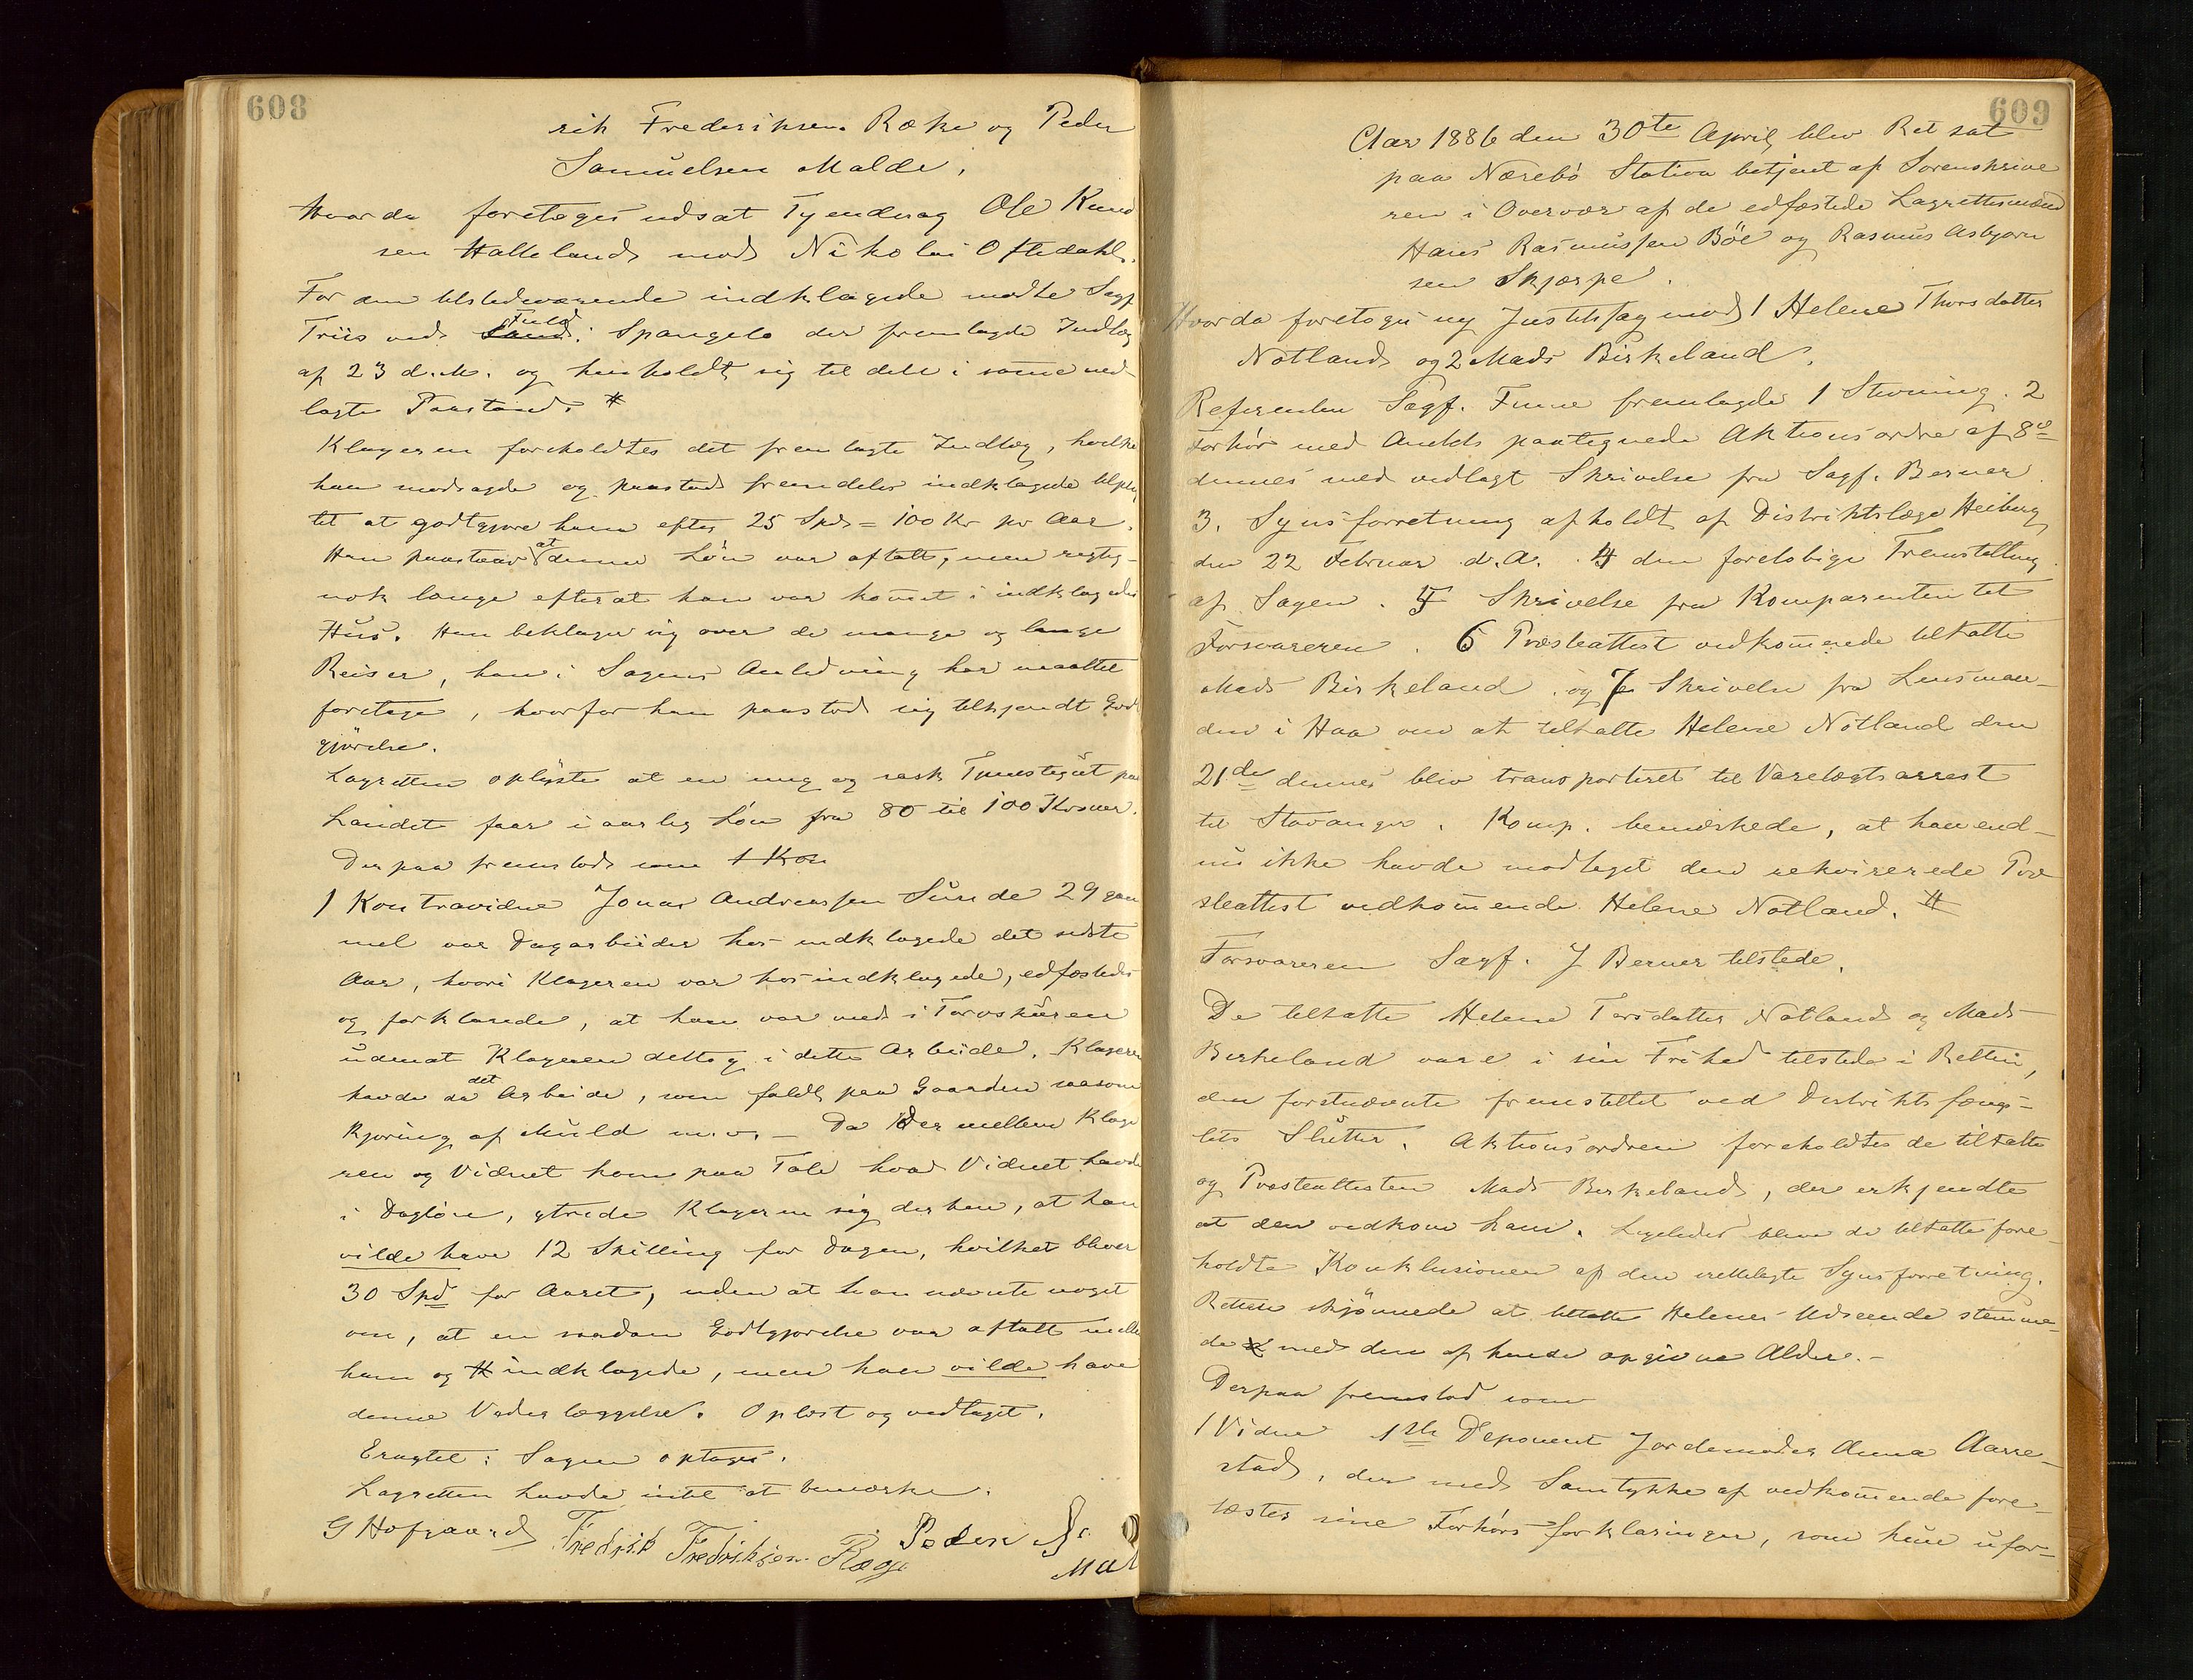 608
rik Frederiksen Røke og Peder
Samuelsen Malde.
Hvorda foretoges udsat Tyendesag Ole Knud
sen Hallelands mod Nikolai Oftedahl.
For den tilstedeværende indklagede mødte Sagf
Triis ved Fuld Spangelo der fremlagde Indlæg
af 23 d.M. og henholdt sig til den i samme ned-
lagte Paastand. #
Klageren foreholdtes det fremlagte Indlæg, hvilke
han modsagde og paastod fremdeles indklagede tilplig
tet at godtgjøre ham efter 25 Spd = 100 Kr pr Aar.
Han paastaar at denne Løn var aftalt, men rigtig-
nok længe efterat han var kommet i indklagedes
Hus. Han beklager sig over de mange og lange
Reiser, han i Sagens Anledning har maattet
foretage, hvorfor han paastod sig tilkjendt God
gjørelse.
Lagretten oplyste at en ung og rask Tjenestegut paa
Landet faar i aarlig Løn fra 80 til 100 Kroner.
Derpaa fremstod som 1 Kon
1 Kontravidne Jonas Andreassen Sunde 29 gam
mel var Dagarbeider hos indklagede det sidste
Aar, hvori Klageren var hos indklagede, edfæstedes
og forklarede, at han var med i Torvskuren
udenat Klageren deltog i dette Arbeide. Klageren
havde da det Arbeide, som faldt paa Gaarden saasom
Kjøring af Muld m.v. – Da der mellem Klage
ren og Vidnet kom paa Tale hvad Vidnet havde
i Dagløn, ytrede Klageren sig derhen, at han
vilde have 12 Skilling for Dagen, hvilket bliver
30 Spd for Aaret, uden at han nævnte noget
om, at en saadan Godtgjørelse var aftalt melle
ham og indklagede, men han vilde have
denne Vederlæggelse. Oplæst og vedtaget.
Eragtet: Sagen optages.
Lagretten havde intet at bemærke.
G Hofgaard Fredrik Fredriksen Røge Peder
Mal
609
Aar 1886 den 30te April blev Ret sat
paa Nærebø Station betjent af Sorenskrive
ren i Overvær af de edfæstede Lagrettesmænd
Hans Rasmussen Böe og Rasmus Asbjørn
sen Skjærpe.
Hvorda foretoges ny Justitssag mod 1 Helene Thorsdatter
Nøtland og 2 Mads Birkeland.
Referenten Sagf. Finne fremlagde 1 Stevning. 2
Forhør med Amtets paategnede Aktionsordre af 8de
dennes med vedlagt Skrivelse fra Sagf. Berner
3. Synsforretning afholdt af Distriktslæge Heiberg
den 22 Februar d.A. . 4 den foreløbige Fremstilling
af Sagen. 5 Skrivelse fra Komparenten til
Forsvareren. 6 Præsteattest vedkommende tiltalte
Mads Birkeland. og 7 Skrivelse fra Lensman-
den i Haa om at tiltalte Helene Nøtland den
21de dennes blev transporteret til Varetægtsarrest
til Stavanger. Komp. bemærkede, at han end-
nu ikke havde modtaget den rekvirerede Præ
steattest vedkommende Helene Nøtland. #
Forsvareren Sagf. J Berner tilstede.
De tiltalte Helene Torsdatter Nøtland og Mads
Birkeland vare i sin Frihed tilstede i Retten,
den førstnævnte fremstillet ved Distriktsfæng-
lets Slutter. Aktionsordren foreholdtes de tiltalte
og Præsteattesten Mads Birkeland, der erkjendte
at den vedkom ham. Ligeledes bleve de tiltalte fore-
holdte Konklusionen af den irettelagte Synsforretning.
Retten skjønnede at tiltalte Helenes Udseende stemme-
de med den af hende opgivne Alder. –
Derpaa fremstod som
1 Vidne 1ste Deponent Jordemoder Anna Aarre-
stad, der med Samtykke af vedkommende fore-
læstes sine Forhørsforklaringer, som hun ufor-